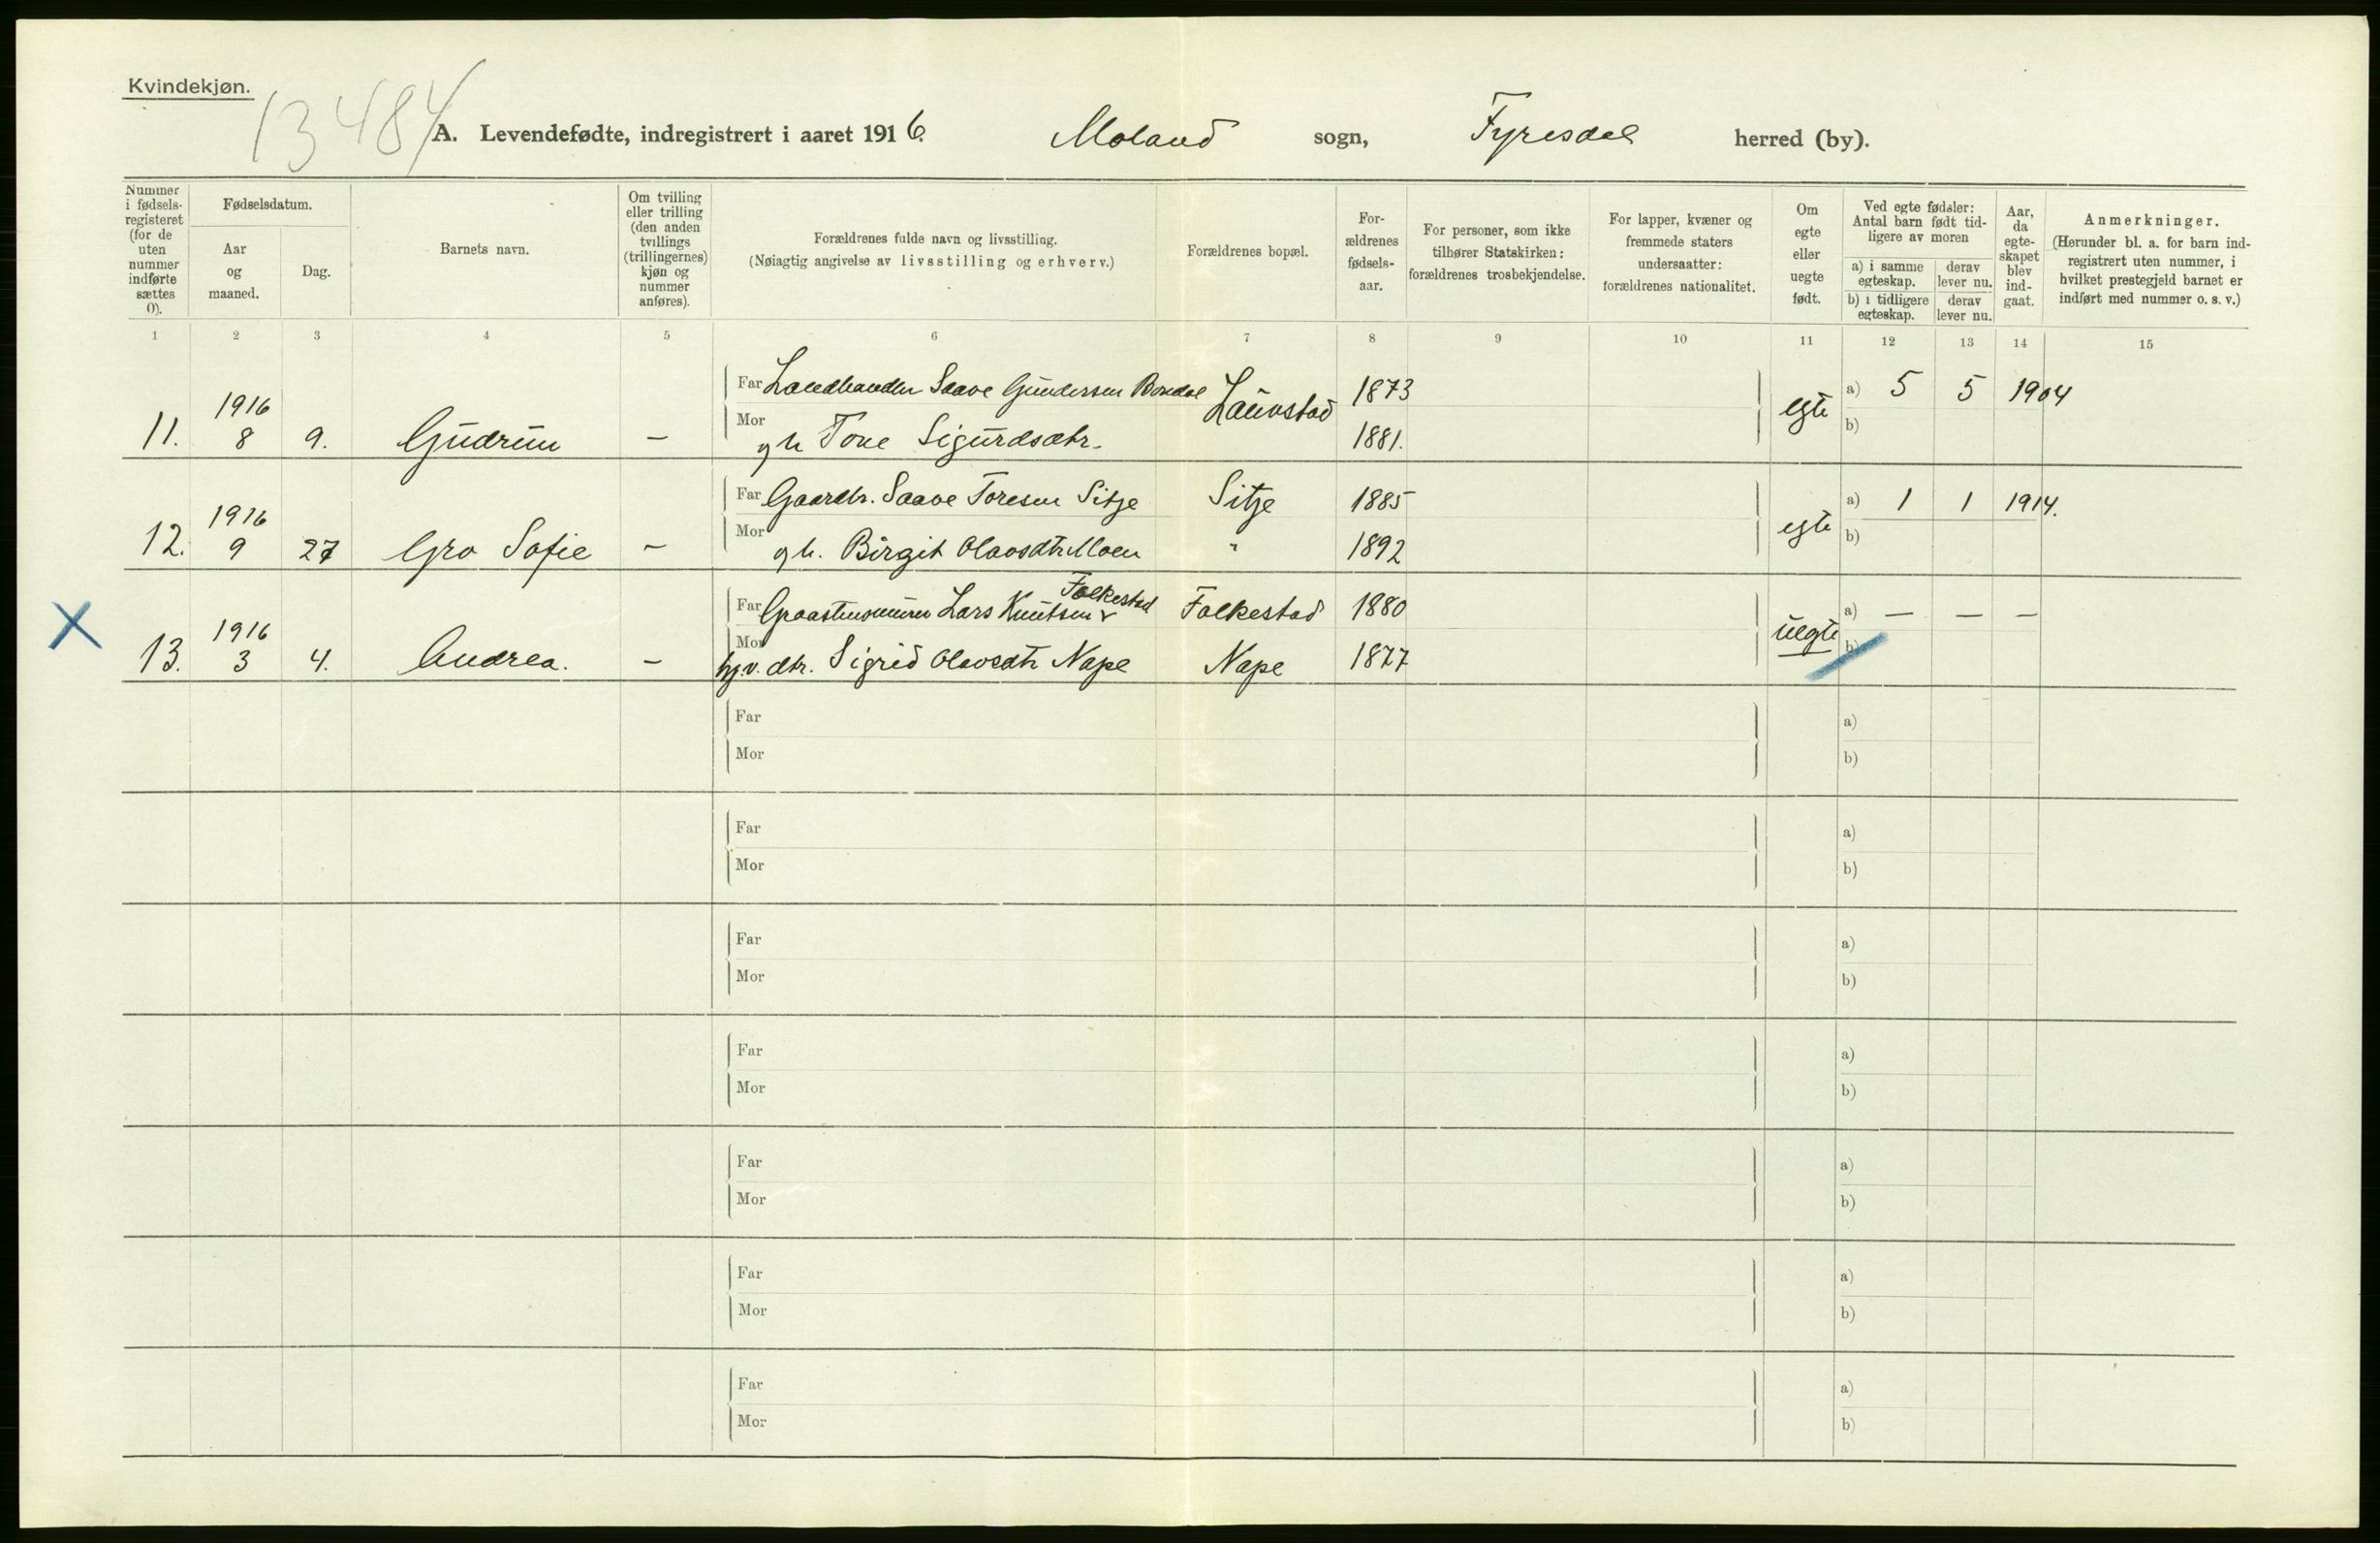 Kvindekjøn.
13484
A. Levendefødte, indregistrert i aaret 1916. Moland sogn, Fyresdal herred (by).
Nummer i fødsels-registeret (for de uten nummer indførte sættes 0).
Fødselsdatum.
Aar og maaned.
Dag.
Barnets navn.
Om tvilling eller trilling (den anden tvillings (trillingernes) kjøn og nummer anføres).
Forældrenes fulde navn og livsstilling.
(Nøiagtig angivelse av livsstilling og erhverv.)
Forældrenes bopæl.
For-ældrenes fødsels-aar.
For personer, som ikke tilhører Statskirken: forældrenes trosbekjendelse.
For lapper, kvæner og fremmede staters undersaatter: forældrenes nationalitet.
Om egte eller uegte født.
Ved egte fødsler: Antal barn født tid-ligere av moren
a) i samme egteskap.
derav lever nu.
b) i tidligere egteskap.
derav lever nu.
Aar, da egte-skapet blev ind-gaat.
Anmerkninger.
(Herunder bl. a. for barn ind-registrert uten nummer, i hvilket prestegjeld barnet er indført med nummer o. s. v.)
1 2 3 4 5 6 7 8 9 10 11 12 13 14 15
Far Landhandler Saave Gundersen 1873 a) 5 5 1904
11. 1916 8 9. Gudrun — Launstad egte
Mor gh Tone Sigurdsdtr. 1881. b)
Far Gaardbr. Saave Toresen Sitje Sitje 1885 a) 1 1 1914.
12. 1916 9 27 Gro Sofie — egte
Mor gh. Birgit Olavsdtr Moen " 1892 b)
Folkestad
Far Lars Knutsen Folkestad 1880 a) — — —
X 13. 1916 3 4. Andrea. — uegte
Mor hj.v. dtr. Sigrid Olavsdtr Nape Nape 1877 b)
Far a)
Mor b)
Far a)
Mor b)
Far a)
Mor b)
Far a)
Mor b)
Far a)
Mor b)
Far a)
Mor b)
Far a)
Mor b)